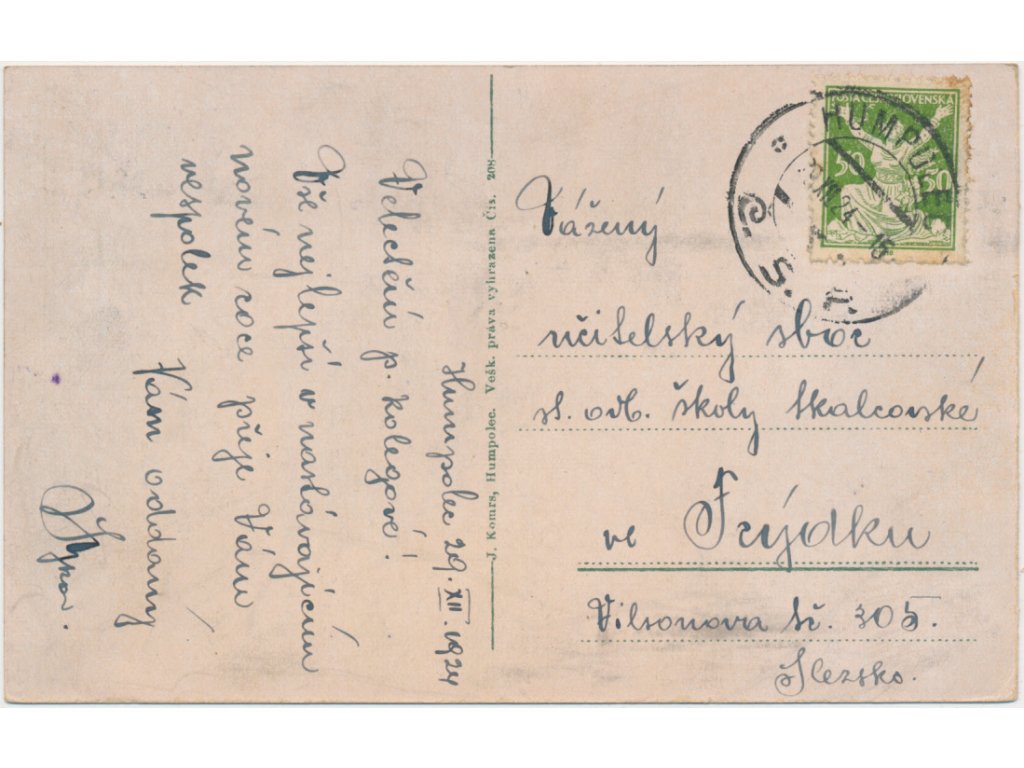 Humpolec 29.XII.1924
Velectění p. kolegové!
Vše nejlepší v nastávajícím
novém roce přeje Vám
vespolek
Vám oddaný
J. Komrs, Humpolec. Vešk. práva vyhrazena Čís. 208
POŠTA ČESKOSLOVENSKÁ
50 50
HUMPOLEC
XII.24-15
Č.S.P.
Vážený
učitelský sbor
st. odb. školy tkalcovské
ve Frýdku
Vilsonova tř. 305.
Slezsko.